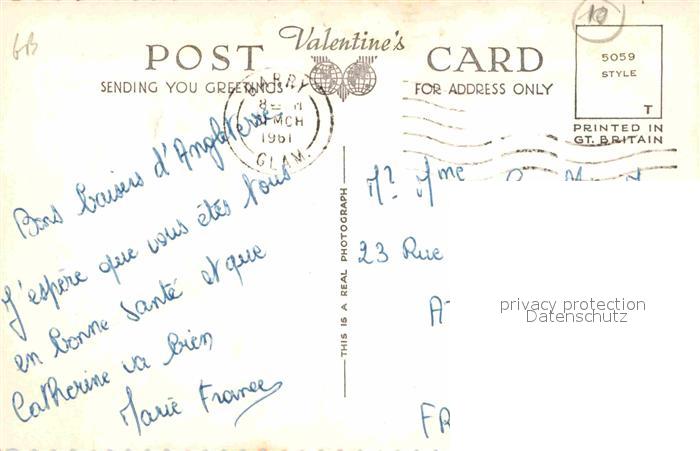 6B
10
POST Valentine's CARD
SENDING YOU GREETINGS
FOR ADDRESS ONLY
5059
STYLE
T
PRINTED IN
GT. BRITAIN
BARRY
MCH
1961
GLAM.
Bons baisers d'Angleterre.
J'espère que vous êtes tous
en bonne santé et que
Catherine va bien
Marie France
THIS IS A REAL PHOTOGRAPH
Mr Mme
23 Rue
A
FR
privacy protection
Datenschutz